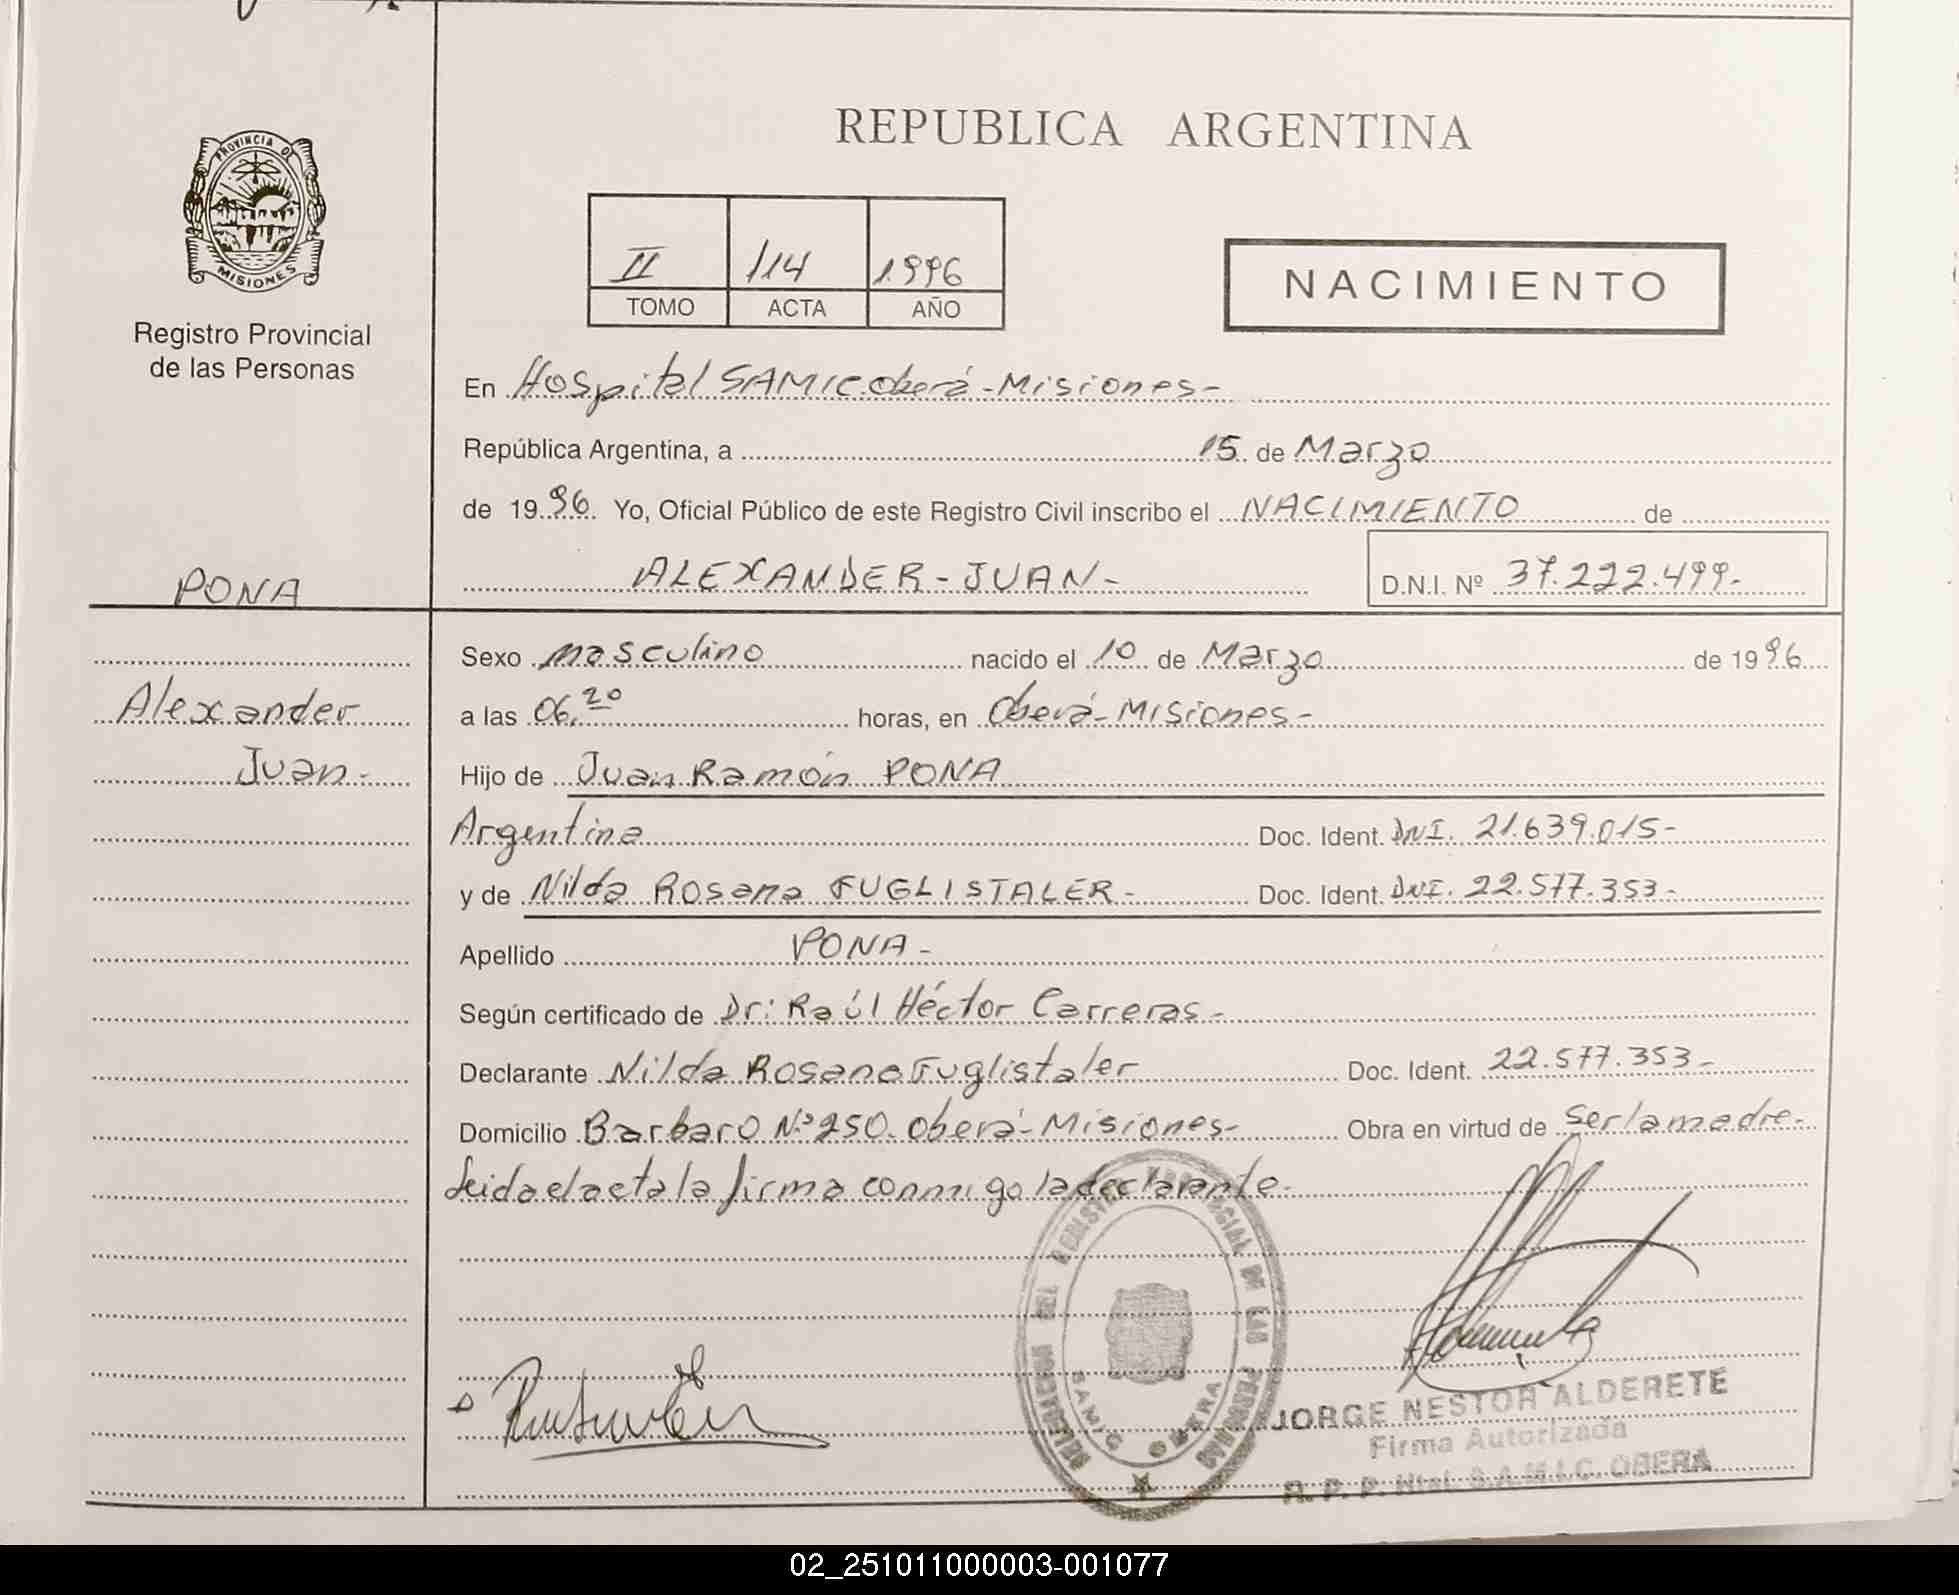 REPUBLICA ARGENTINA
PROVINCIA DE
MISIONES
Registro Provincial
de las Personas
II 114 1996
TOMO ACTA AÑO
NACIMIENTO
En Hospital SAMIC Oberá - Misiones -
República Argentina, a 15 de Marzo
de 1996. Yo, Oficial Público de este Registro Civil inscribo el NACIMIENTO de
PONA
ALEXANDER - JUAN - D.N.I. Nº 37.222.499.-
Sexo masculino nacido el 10 de Marzo de 1996
Alexander
a las 06,20 horas, en Oberá - Misiones -
Juan -
Hijo de Juan Ramón PONA
Argentina Doc. Ident. DNI. 21.639.015-
y de Nilda Rosana FUGLISTALER - Doc. Ident. DNI. 22.577.353-
Apellido PONA -
Según certificado de Dr: Raúl Héctor Carreras -
Declarante Nilda Rosana Fuglistaler Doc. Ident. 22.577.353-
Domicilio Barbaro Nº 250. Oberá - Misiones - Obra en virtud de ser la madre -
Leida el acta la firma conmigo la declarante -
DELEGACION DEL REGISTRO PROVINCIAL DE LAS PERSONAS
SAMIC OBERA
JORGE NESTOR ALDERETE
Firma Autorizada
R. P. P. Htal. S.A.M.I.C. OBERA
02_251011000003-001077